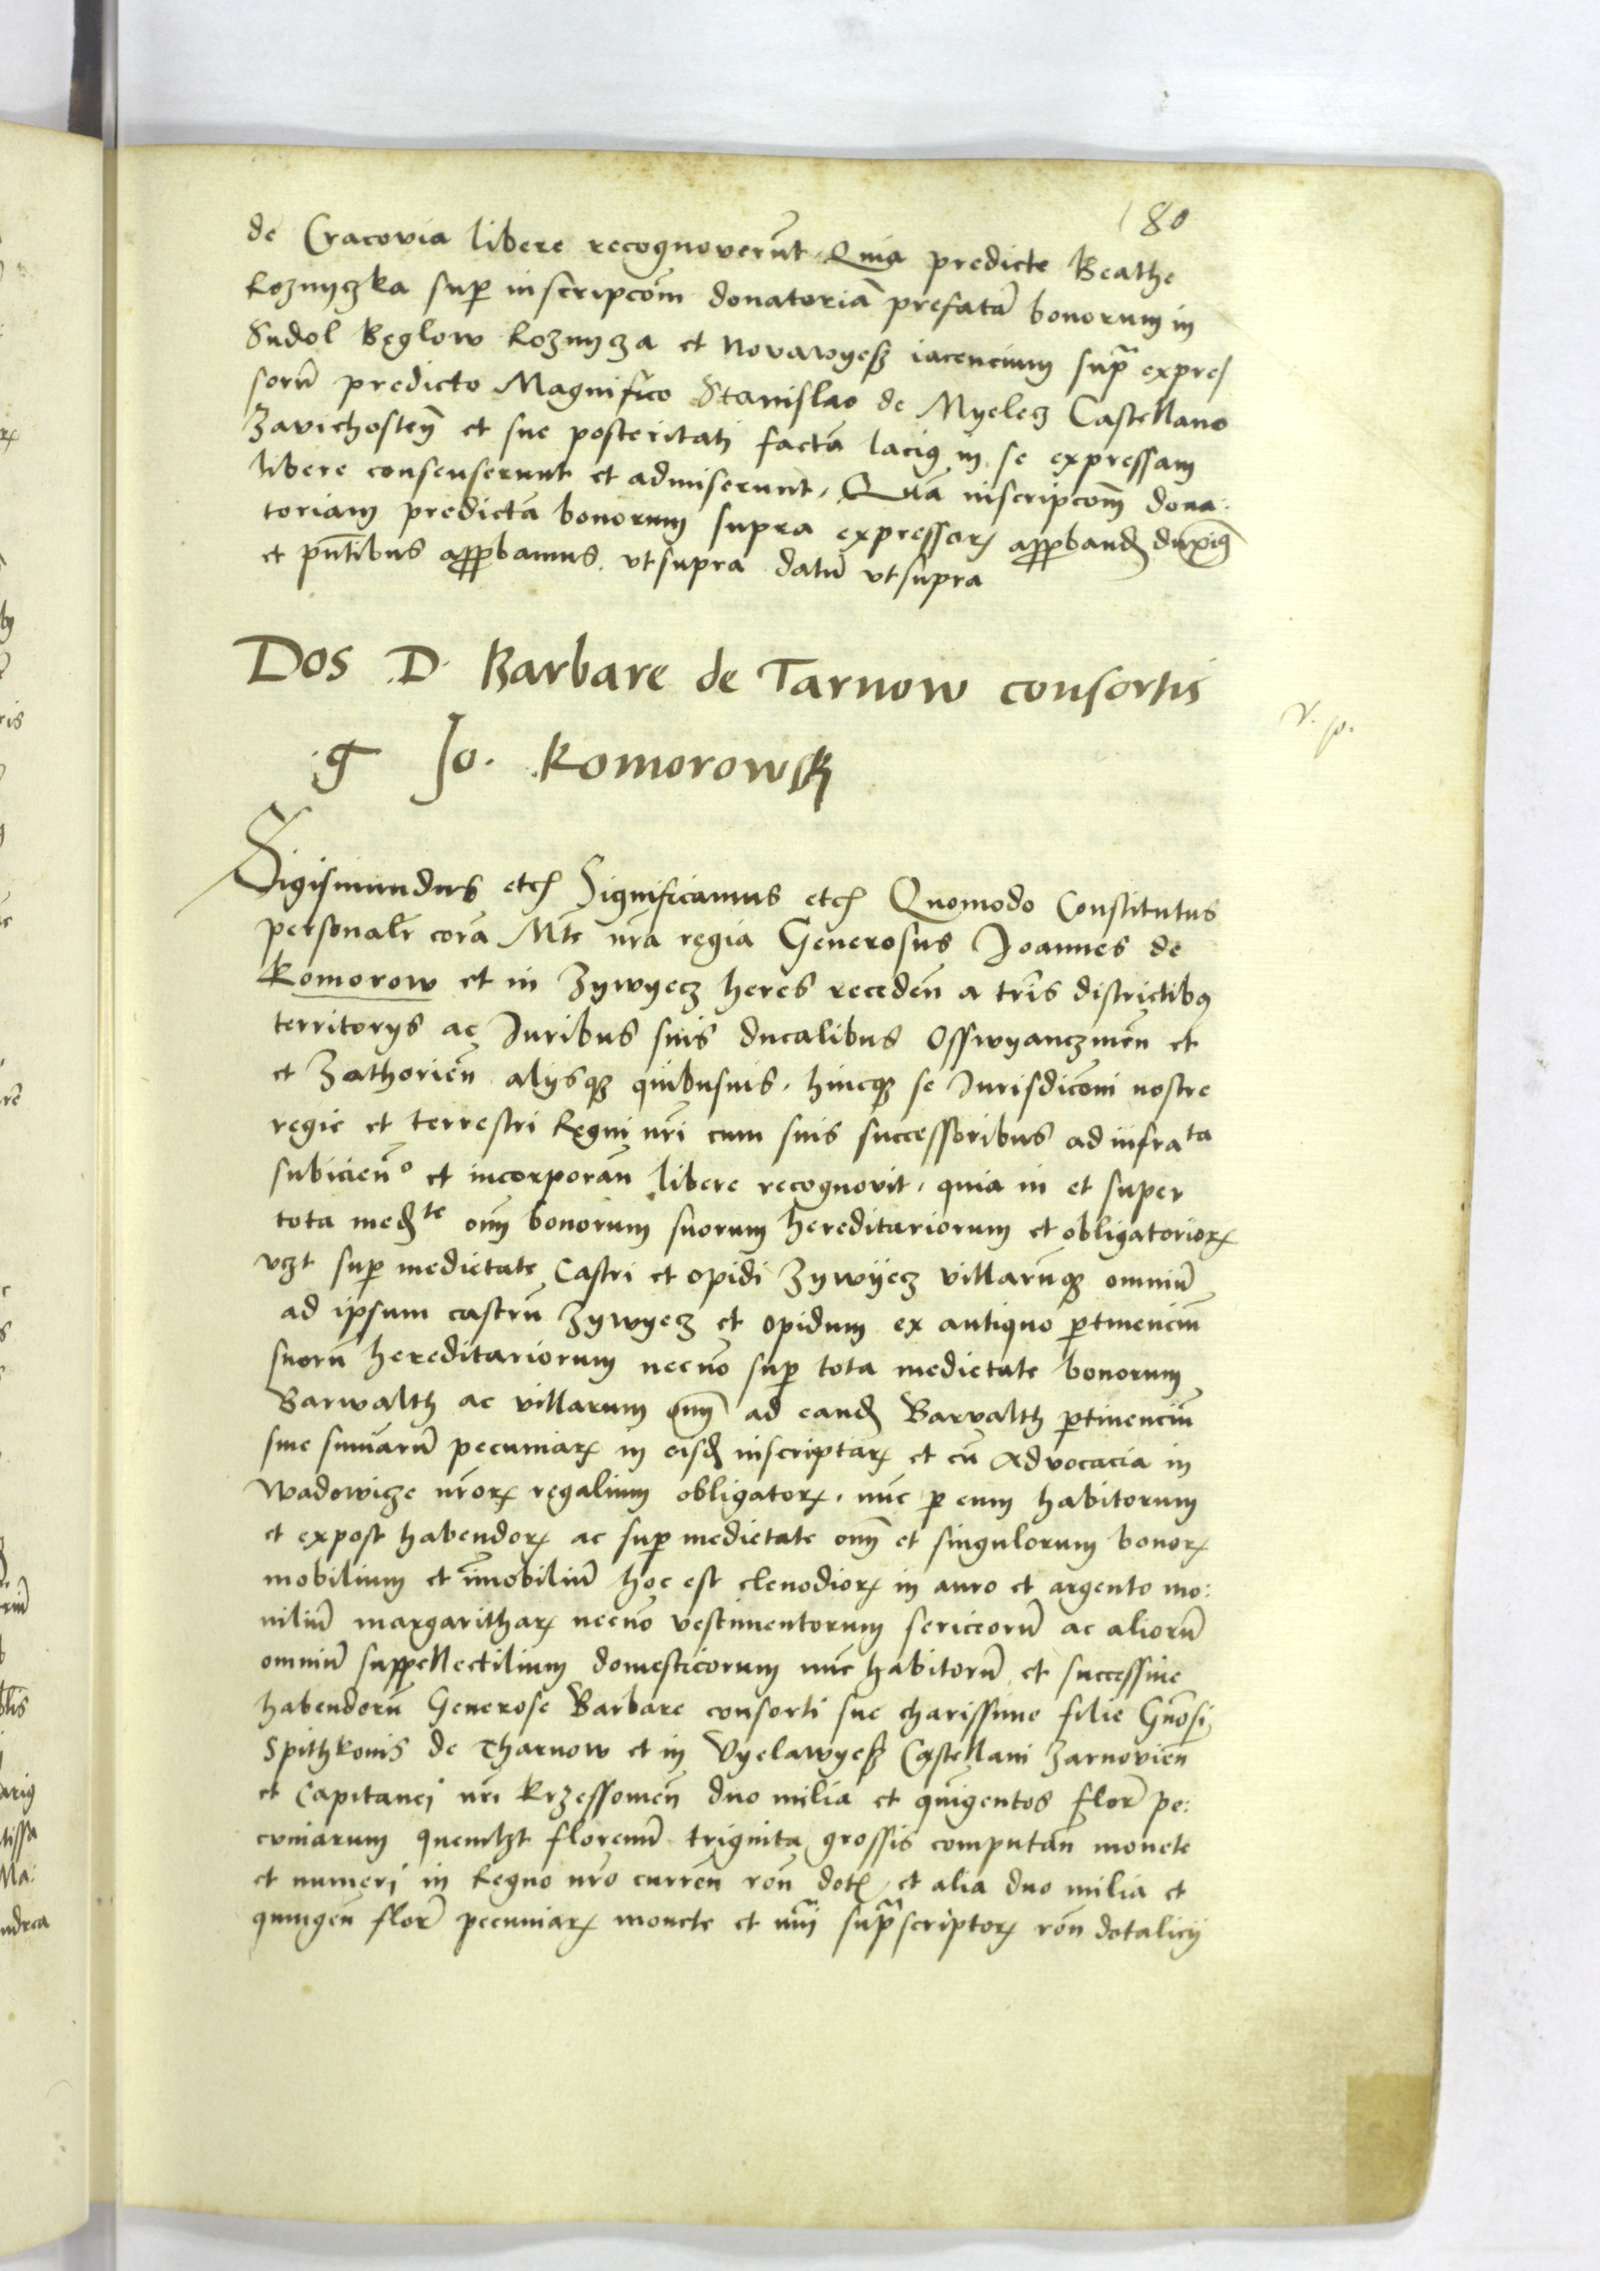 180
de Cracovia libere recognoverūt, Quia predicte Beathe
kozmyczka sup inscripcōm donatoriā prefatā bonorum in
Sudol Bęglow kozmyza et Novawyesz iacencium sup̄ expres
sorū predicto Magnifico Stanislao de Myelecz Castellano
Zavichosteñ et sue posteritati factā lacius in se expressam
libere consenserunt et admiserunt, Quā inscripcōm dona:
toriam predictā bonorum supra expressorꝝ approbanđ duxim9
et pn̄tibus approbamus. vtsupra datū vtsupra
Dos D. Barbare de Tarnow consortis
g Jo. Komorowsky
v. p.
Sigismundus etcꝭ Significamus etcꝭ Quomodo Constitutus
personalr̄ corā Mte nrā regia Generosus Joannes de
Komorow et in Zywyecz heres recedeñ a trīs districtibus
territorys ac Iuribus suis ducalibus Osswyanczmeñ et
et Zathorieñ alysqꝫ quibusuis, hincqꝫ se Iurisdicōni nostre
regie et terrestri Regni nrī cum suis successoribus ad infrata
subicieñ et incorporañ libere recognovit, quia in et super
tota međte om̄ bonorum suorum hereditariorum et obligatoriorꝝ
vꝫt sup medietate Castri et opidi Zywyecz villarūqꝫ omniū
ad ipsum castrū Zywyecz et opidum ex antiquo ptinenciū
suorū hereditariorum necnō sup tota medietate bonorum
Barwalth ac villarum om̄ ad eanđ Barvalth ptinenciū
siue sum̄arū pecuniarꝝ in eisđ inscriptarꝝ et cū Advocacia in
Wadowicze nrōrꝝ regalium obligatorꝝ, nūc p eum habitorum
et expost habendorꝝ ac sup medietate om̄ et singulorum bonorꝝ
mobilium et īmobiliū hoc est clenodiorꝝ in auro et argento mo:
niliū margaritharꝝ necnō vestimentorum sericeorū ac aliorū
omniū suppellectilium domesticorum nūc habitorū et successiue
habendorū Generose Barbare consorti sue charissime filie Gn̄osi
Spithkonis de Tharnow et in Vyelawyesz Castellani Zarnovieñ
et Capitanei nrī Krzessomeñ duo milia et quīgentos flor̄ pe:
cuniarum quemlꝫt florenū triginta grossis computañ monete
et numeri in Regno nrō curreñ rōn dotꝭ, et alia duo milia et
quingeñ flor̄ pecuniarꝝ monete et nrī sup̄scriptorꝝ rōn dotalicy